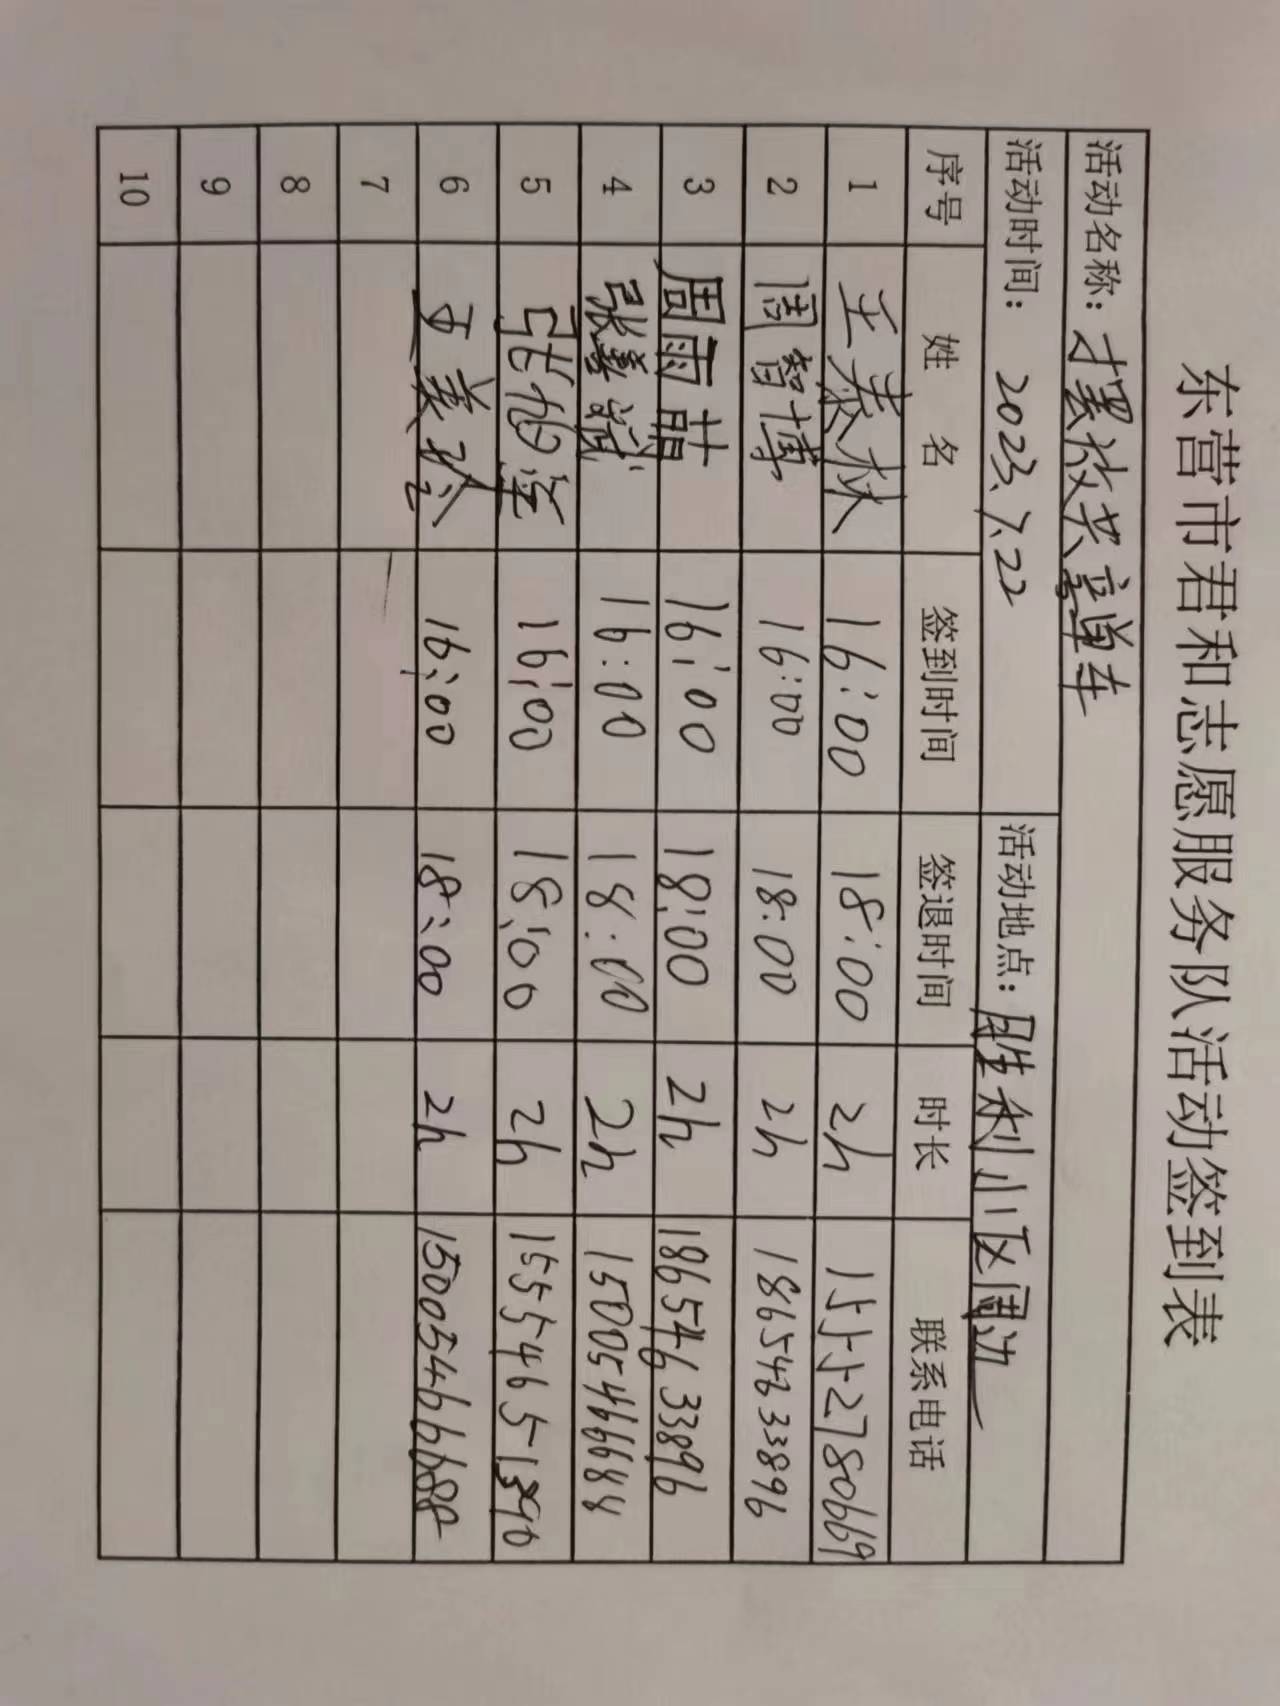 东营市君和志愿服务队活动签到表
活动名称：摆放共享单车
活动时间：2023.7.22 活动地点：胜利小区周边
序号 姓名 签到时间 签退时间 时长 联系电话
1 王泰林 16:00 18:00 2h 15552780669
2 周智博 16:00 18:00 2h 18654233896
3 周雨萌 16:00 18:00 2h 18654633896
4 张嘉斌 16:00 18:00 2h 15005466688
5 16:00 18:00 2h
6 16:00 18:00 2h 15005466688
7
8
9
10